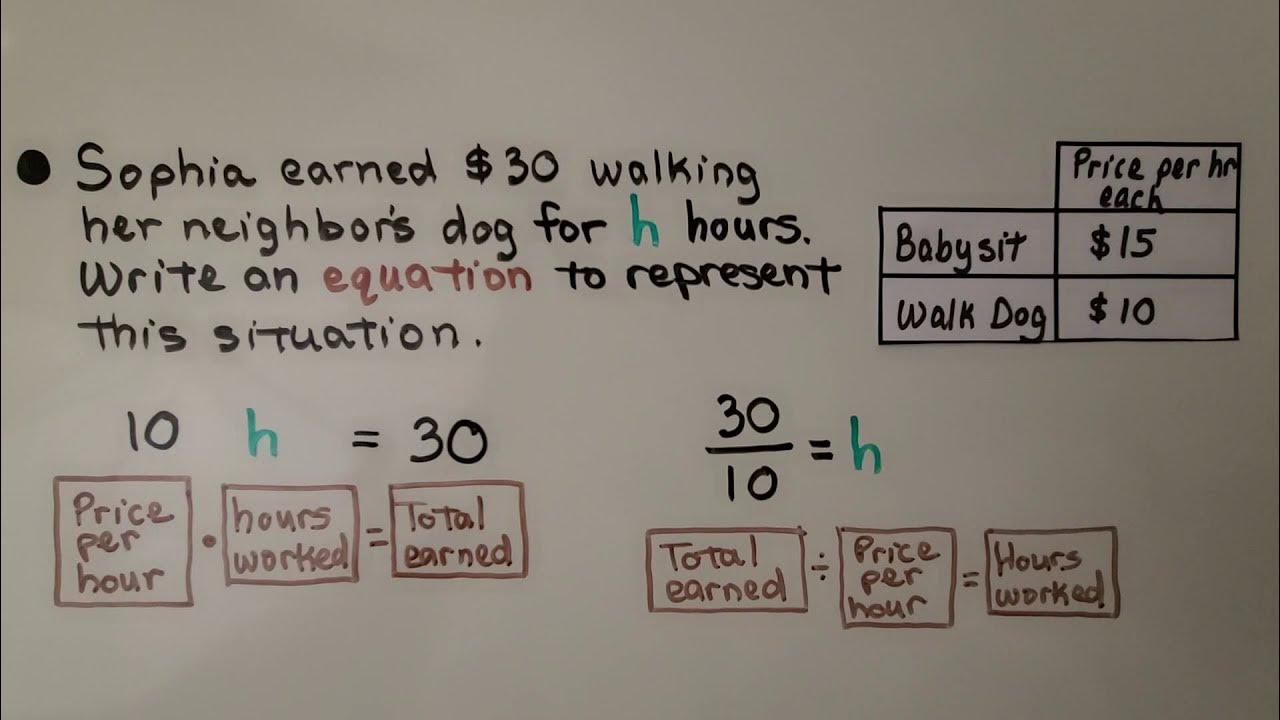 Sophia earned $30 walking
her neighbor's dog for h hours.
Write an equation to represent
this situation.
Price per hr
each
Babysit $15
Walk Dog $10
10 h = 30
Price
per
hour
·
hours
worked
=
Total
earned
30
10
= h
Total
earned
÷
Price
per
hour
=
Hours
worked